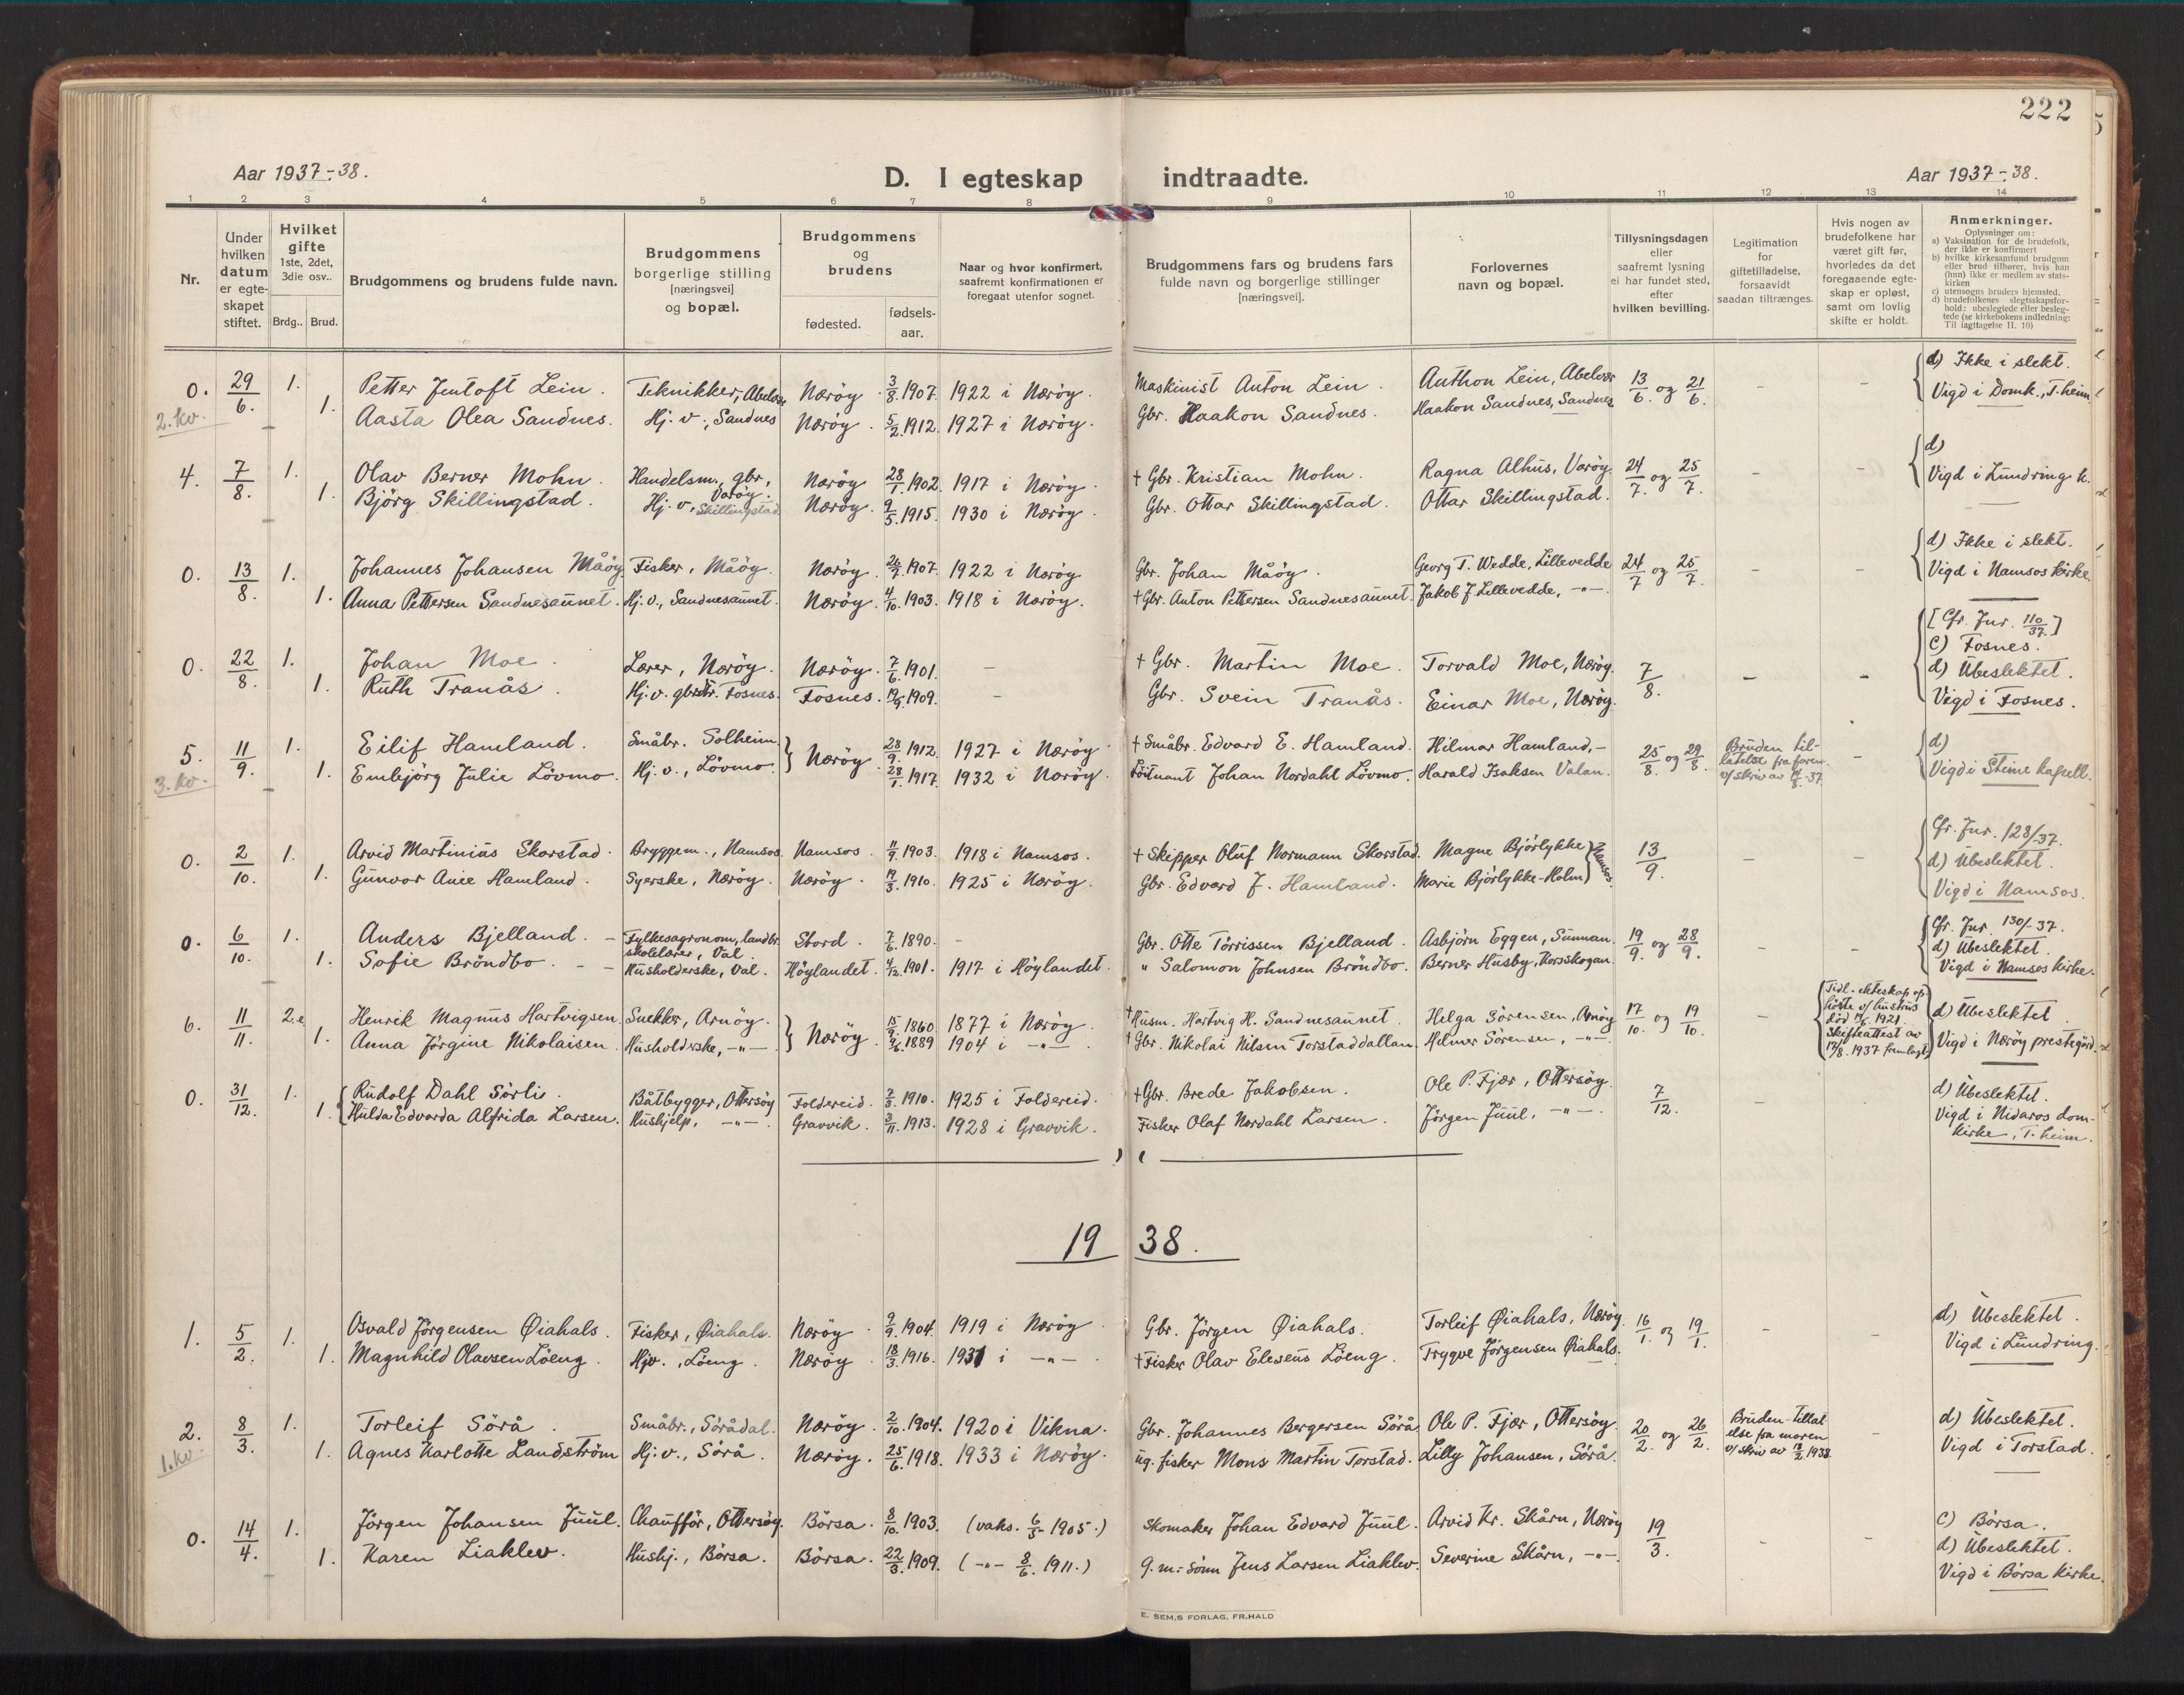 222
Aar 1937-38.
D. I egteskap indtraadte.
Aar 1937-38.
1 2 3 4 5 6 7 8 9 10 11 12 13 14
Nr.
Under hvilken datum er egteskapet stiftet.
Hvilket gifte 1ste, 2det, 3die osv..
Brdg.. Brud.
Brudgommens og brudens fulde navn.
Brudgommens borgerlige stilling [næringsvei] og bopæl.
Brudgommens og brudens
fødested.
fødselsaar.
Naar og hvor konfirmert, saafremt konfirmationen er foregaat utenfor sognet.
Brudgommens fars og brudens fars fulde navn og borgerlige stillinger [næringsvei].
Forlovernes navn og bopæl.
Tillysningsdagen eller saafremt lysning ei har fundet sted, efter hvilken bevilling.
Legitimation for giftetilladelse, forsaavidt saadan tiltrænges.
Hvis nogen av brudefolkene har været gift før, hvorledes da det foregaaende egteskap er opløst, samt om lovlig skifte er holdt.
Anmerkninger.
Oplysninger om:
a) Vaksination for de brudefolk, der ikke er konfirmert
b) hvilke kirkesamfund brudgom eller brud tilhører, hvis han (hun) ikke er medlem av statskirken
c) utensogns bruders hjemsted,
d) brudefolkenes slegtsskapsforhold: ubeslegtede eller beslegtede (se kirkebokens indledning: Til iagttagelse II. 10)
0. 29/6. 1. Petter Jentoft Lein. Teknikker, Abelvær Nærøy. 3/8. 1907. 1922 i Nærøy. Maskinist Anton Lein. Anthon Lein, Abelvær 13/6. og 21/6. - - d) Ikke i slekt.
2. kv. 1. Aasta Olea Sandnes. Hj. v., Sandnes Nærøy. 5/2. 1912. 1927 i Nærøy. Gbr. Haakon Sandnes. Haakon Sandnes, Sandnes Vigd i Domk., T.heim.
4. 7/8. 1. Olav Berner Mohn. Handelsm., gbr., Varøy. Nærøy 28/1. 1902. 1917 i Nærøy. † Gbr. Kristian Mohn. Ragna Alhus, Varøy. 24/7. og 25/7. - - d)
1. Bjørg Skillingstad. Hj. v., Skillingstad Nærøy. 9/5. 1915. 1930 i Nærøy. Gbr. Ottar Skillingstad. Ottar Skillingstad. Vigd i Lundring k.
0. 13/8. 1. Johannes Johansen Måøy. Fisker, Måøy. Nærøy. 1907. 1922 i Nærøy Gbr. Johan Måøy. Georg T. Wedde, Lillevedde 24/7 og 25/7. - - d) Ikke i slekt.
1. Anna Pettersen Sandnesaunet. Hj. v., Sandnesaunet. Nærøy. 4/10. 1903. 1918 i Nærøy. † Gbr. Anton Pettersen Sandnesaunet. Jakob J. Lillevedde, -"-. Vigd i Namsos kirke.
[Cfr. Jur. 110/37.]
0. 22/8. 1. Johan Moe. Lærer, Nærøy. Nærøy. 7/6. 1901. - † Gbr. Martin Moe. Torvald Moe, Nærøy. 7/8. - - c) Fosnes.
1. Ruth Tranås. Hj. v. gbrdtr. Fosnes. Fosnes. 1909. - Gbr. Svein Tranås. Einar Moe, Nærøy. d) Ubeslektet.
Vigd i Fosnes.
5. 11/9. 1. Eilif Hamland. Småbr. Solheim. } Nærøy. 28/9. 1912. 1927 i Nærøy. † Småbr. Edvard E. Hamland. Hilmar Hamland, - 25/8. og 29/8. Bruden tillatelse fra faren v/ skriv av -37. - d)
3. kv. 1. Embjørg Julie Løvmo. Hj. v., Løvmo. 28/1. 1917. 1932 i Nærøy. Løitnant Johan Nordahl Løvmo. Harald Isaksen Valan. Vigd i Steine kapell.
0. 2/10. 1. Arvid Martinius Skorstad. Bryggem., Namsos. Namsos. 11/9. 1903. 1918 i Namsos. † Skipper Oluf Normann Skorstad. Magne Bjørlykke } Namsos. 13/9. - - Cfr. Jur. 128/-37.
1. Gunvor Anie Hamland. Syerske, Nærøy. Nærøy. 19/3. 1910. 1925 i Nærøy. Gbr. Edvard J. Hamland. Marie Bjørlykke-Holm d) Ubeslektet.
Vigd i Namsos.
0. 6/10. 1. Anders Bjelland. - Fylkesagronom, landbr. skolelærer, Val. Stord. 7/6. 1890. - Gbr. Otte Tørrissen Bjelland. Asbjørn Eggen, Sunnan. 19/9. og 28/9. - - Cfr. Jur. 130/-37.
1. Sofie Brøndbo. - - Husholderske, Val. Høylandet. 4/12. 1901. 1917 i Høylandet. " Salomon Johnsen Brøndbo. Berner Husby, Korsskogan. d) Ubeslektet.
Vigd i Namsos kirke.
6. 11/11. 2.e Henrik Magnus Hartvigsen. Snekker, Arnøy. } Nærøy. 15/9. 1860. 1877 i Nærøy. † Husm. Hartvig H. Sandnesaunet. Helga Sørensen, Arnøy 17/10. og 19/10. - Tidl. ekteskap ophørte v/ hustrus død 1921. Skifteattest av 17/8. 1937 fremlagt. d) Ubeslektet
1. Anna Jørgine Nikolaisen. Husholdrske, -"-. 9/6. 1889 1904 i -"- † Gbr. Nikolai Nilsen Torstaddallan. Helmer Sørensen, -"-. Vigd i Nærøy prestegård.
0. 31/12. 1. Rudolf Dahl Sørli. Båtbygger, Ottersøy Foldereid. 2/3. 1910. 1925 i Foldereid. † Gbr. Brede Jakobsen. Ole P. Fjær, Ottersøy. 7/12. - d) Ubeslektet.
1. Hulda Edvarda Alfrida Larsen. Hushjelp, -"-. Gravvik. 3/11. 1913. 1928 i Gravvik. Fisker Olaf Nordahl Larsen. Jørgen Juul, -"-. Vigd i Nidaros domkirke, T.heim.
1938.
1. 5/2. 1. Osvald Jørgensen Øiahals. Fisker, Øiahals. Nærøy 9/9. 1904. 1919 i Nærøy. Gbr. Jørgen Øiahals. Torleif Øiahals, Nærøy. 16/1. og 19/1. - - d) Ubeslektet.
1. Magnhild Olavsen Løeng. Hjv., Løeng. Nærøy 18/3. 1916. 1931 i -"-. † Fisker Olav Eleseus Løeng. Trygve Jørgensen Øiahals. Vigd i Lundring.
2. 8/3. 1. Torleif Sørå. Småbr., Sørådal. Nærøy. 2/10. 1904. 1920 i Vikna. Gbr. Johannes Bergersen Sørå Ole P. Fjær, Ottersøy. 20/2. og 26/2. Bruden tillatelse fra moren v/ skriv av 18/2 1938. - d) Ubeslektet.
1. kv. 1. Agnes Karlotte Landstrøm Hj. v., Sørå. Nærøy. 25/6. 1918. 1933 i Nærøy. ug. fisker Mons Martin Torstad. Lilly Johansen, Sørå. Vigd i Torstad.
0. 14/4. 1. Jørgen Johansen Juul. Chauffør, Ottersøy. Børsa. 8/10. 1903. (vaks. 6/5 1905.) Skomaker Johan Edvard Juul. Arvid Kr. Skårn, Nærøy 19/3. - - c) Børsa.
1. Karen Liaklev. Hushj., Børsa. Børsa. 22/3. 1909. (-"- 8/6. 1911.) G.m.-sønn Jens Larsen Liaklev. Severine Skårn, -"-. d) Ubeslektet.
Vigd i Børsa kirke.
E. SEM,S FORLAG, FR.HALD